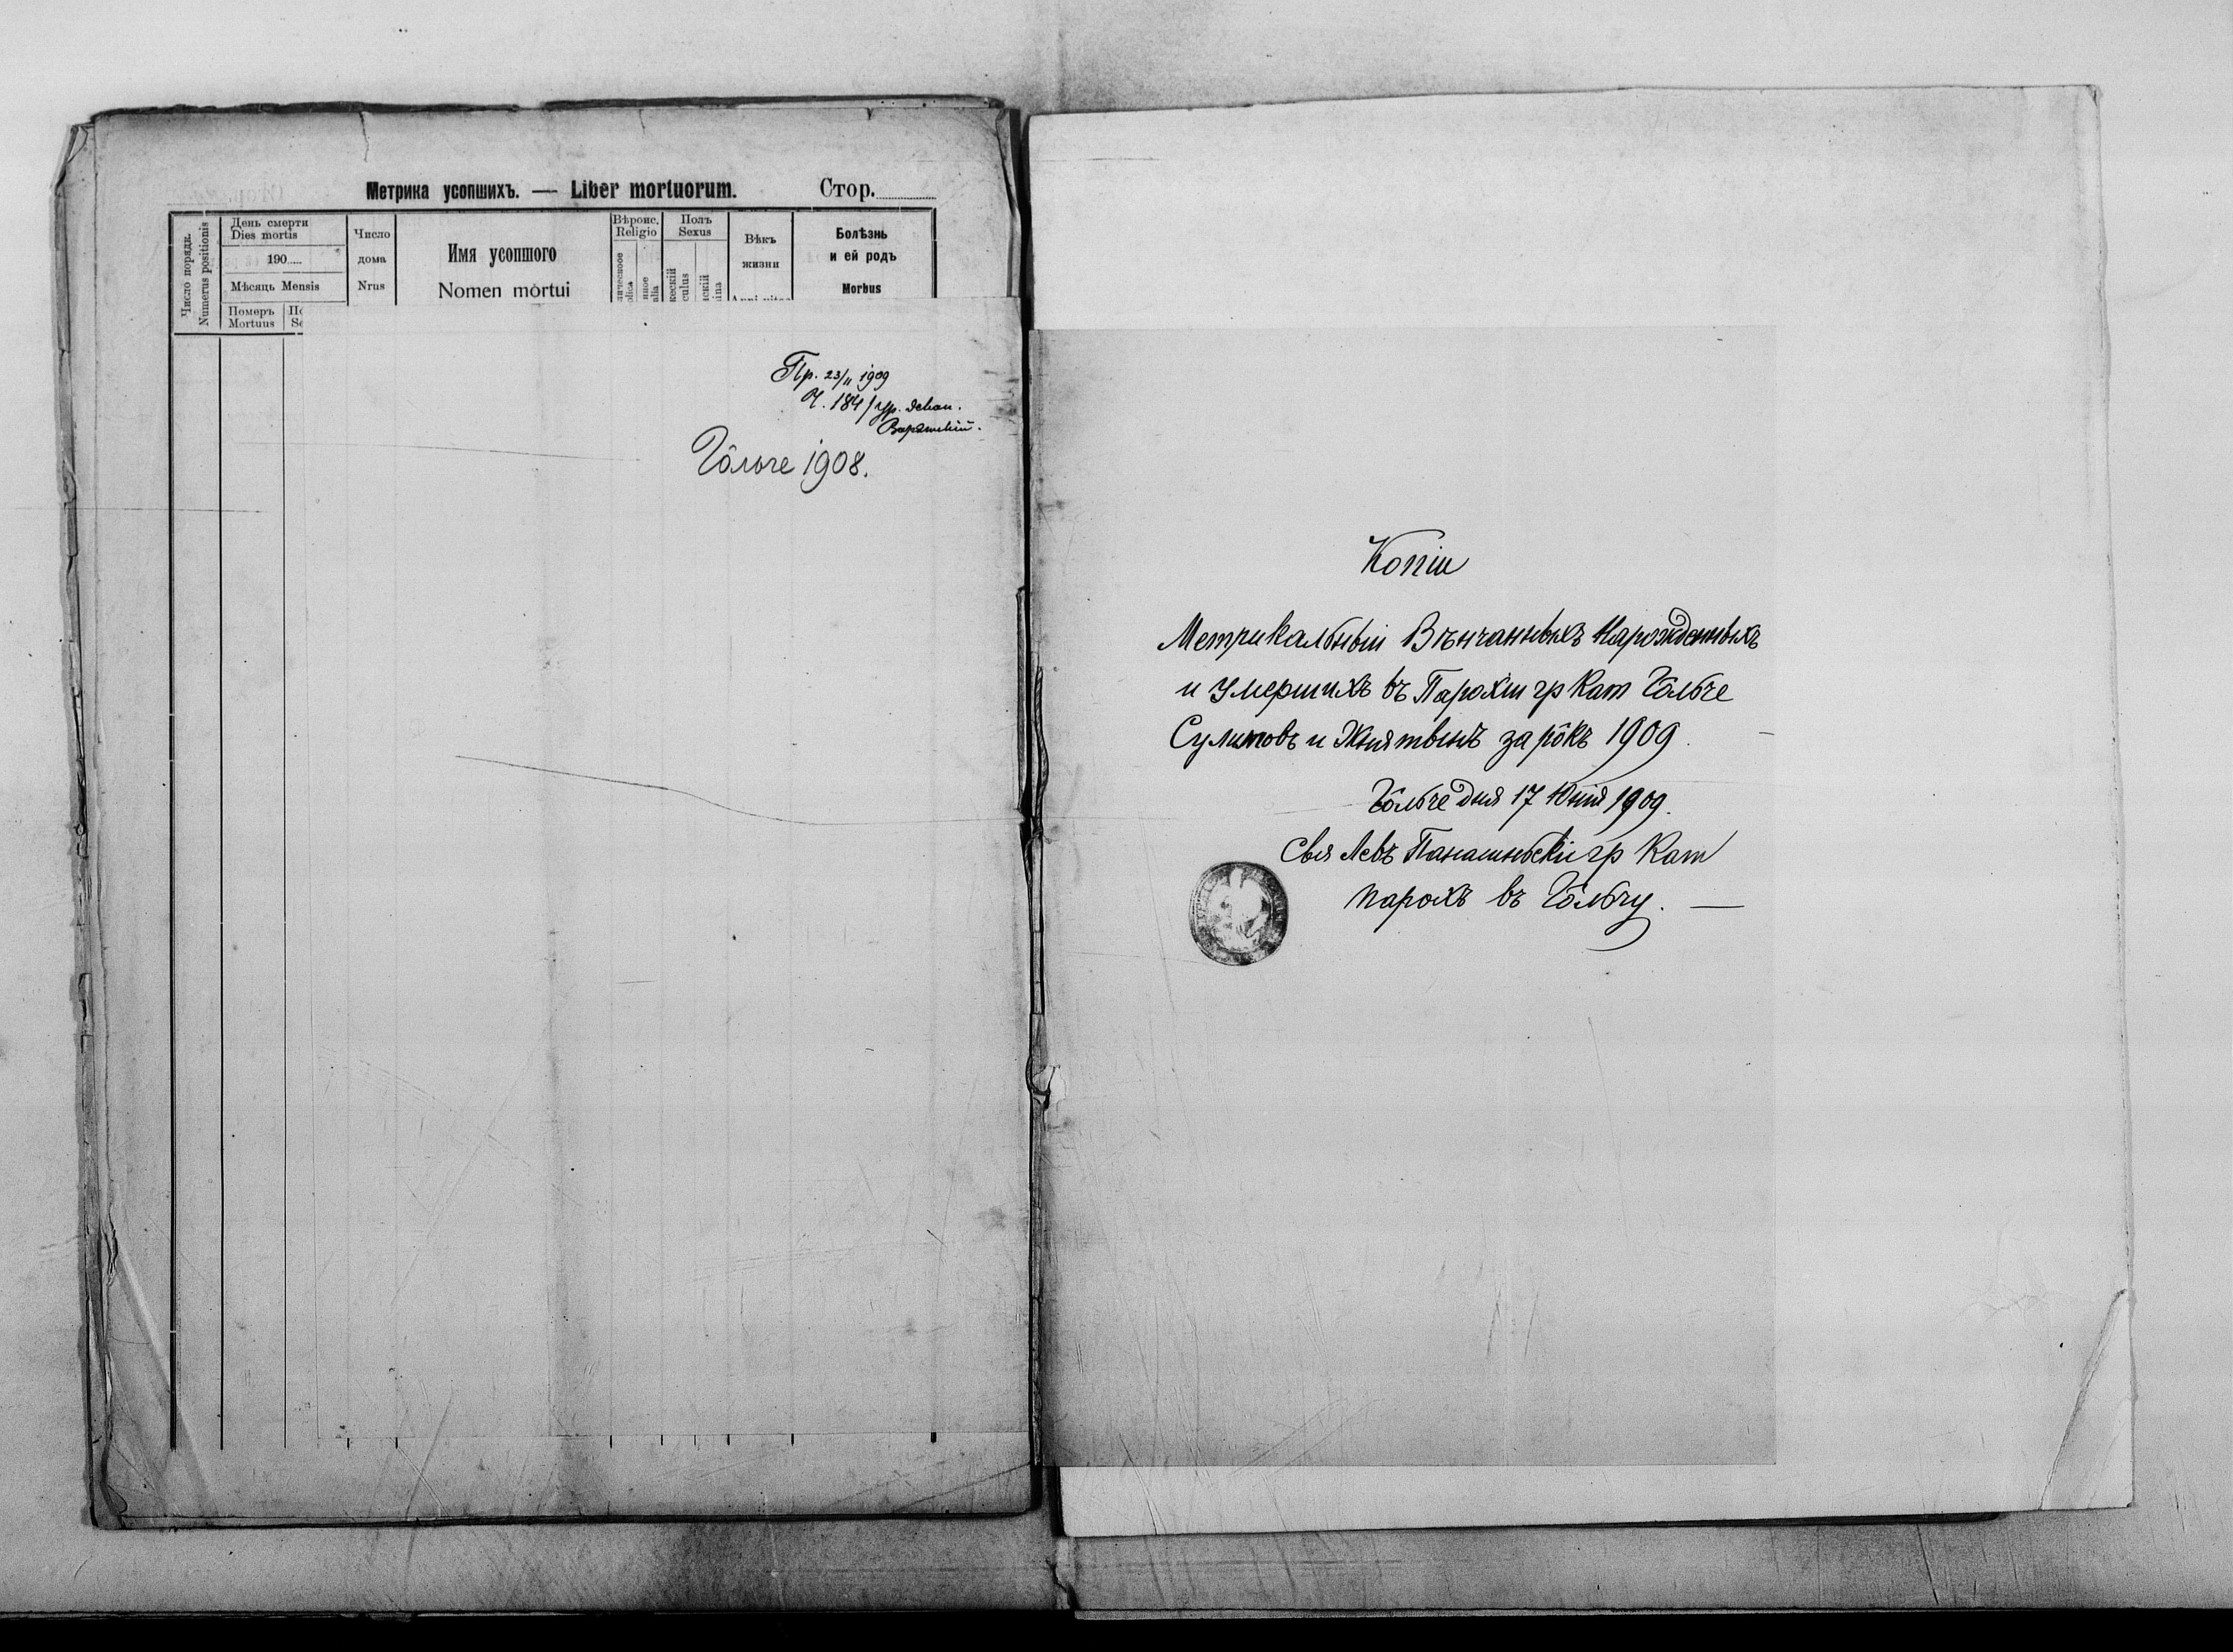 Метрика усопшихъ. — Liber mortuorum. Стор.
Число порядк.
Numerus positionis
День смерти
Dies mortis
190
Мѣсяць Mensis
Померъ
Mortuus
Число
дома
Nrus
Имя усопшого
Nomen mortui
Вѣроис.
Religio
Полъ
Sexus
Вѣкъ
жизни
Болѣзнь
и ей родъ
Morbus
Пр. 23/II 1909
Ч. 184/ Ур. декан.
Гôльче 1908.
Копіи
Метрикальныи Вѣнчанныхъ Нарожденныхъ
и Умершихъ въ Парохіи гр Кат Гôльче
Сулимовъ и Жнятынъ за рôкъ 1909
Гôльче дня 17 Юнія 1909.
Свя Левъ гр Кат
парохъ въ Гôльчу. —